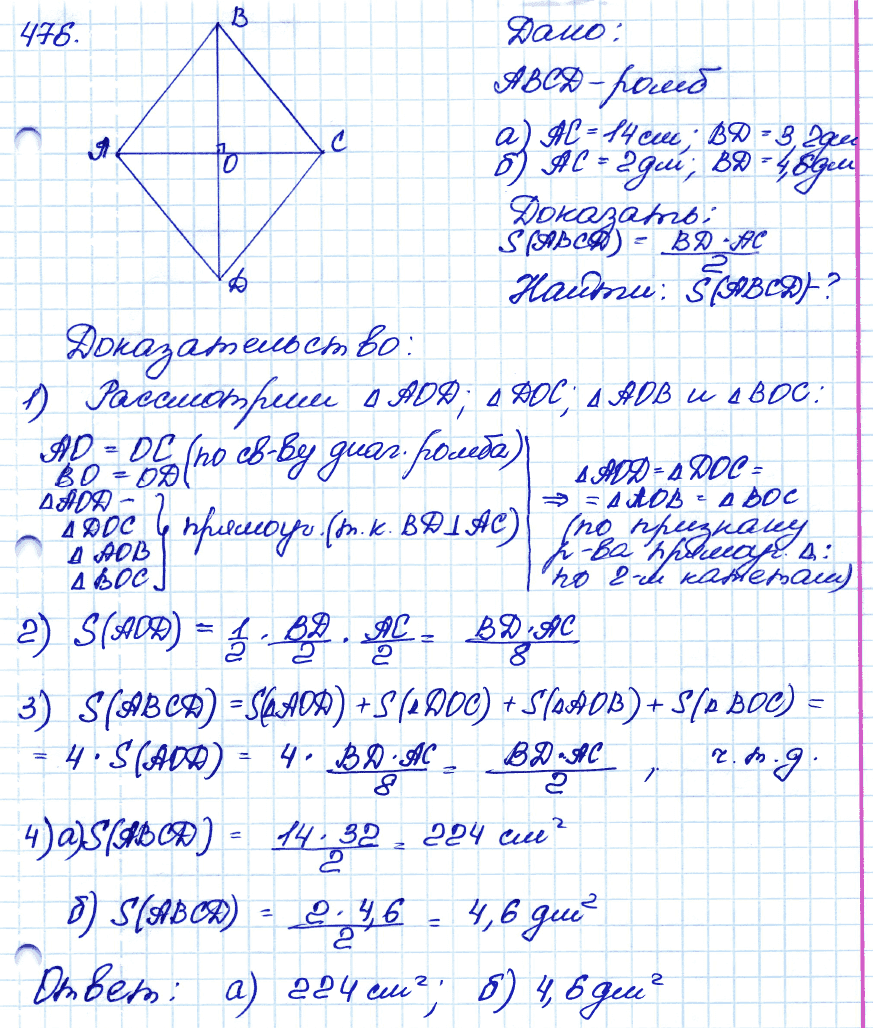 476.
B
A
C
O
D
Дано:
ABCD – ромб
а) AC = 14 см; BD = 3,2 дм
б) AC = 2 дм; BD = 4,6 дм
Доказать:
S(ABCD) = BD·AC / 2
Найти: S(ABCD) – ?
Доказательство:
1) Рассмотрим △AOD; △DOC; △AOB и △BOC:
AO = OC (по св-ву диаг. ромба)
BO = OD
△AOD –
△DOC
△AOB
△BOC
} прямоуг. (т.к. BD⊥AC)
△AOD = △DOC =
⇒ = △AOB = △BOC
(по признаку
р-ва прямоуг. △:
по 2-м катетам)
2) S(AOD) = 1/2 · BD/2 · AC/2 = BD·AC / 8
3) S(ABCD) = S(△AOD) + S(△DOC) + S(△AOB) + S(△BOC) =
= 4 · S(AOD) = 4 · BD·AC / 8 = BD·AC / 2 , ч.т.д.
4) а) S(ABCD) = 14·32 / 2 = 224 см²
б) S(ABCD) = 2·4,6 / 2 = 4,6 дм²
Ответ: а) 224 см²; б) 4,6 дм²